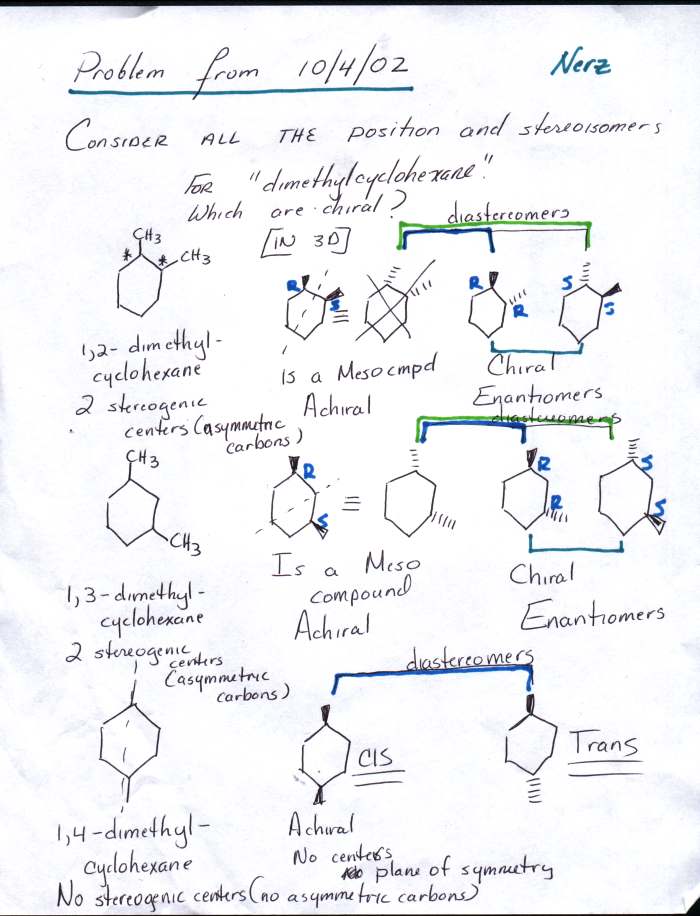 Problem from 10/4/02
Nerz
CONSIDER ALL THE position and stereoisomers
FOR "dimethylcyclohexane".
Which are chiral?
[IN 3D]
diastereomers
CH3
* * CH3
R S ≡
R R
S S
1,2-dimethyl-
cyclohexane
Is a Meso cmpd
Achiral
Chiral
Enantiomers
2 stereogenic
centers (asymmetric
carbons)
diastereomers
CH3
CH3
R S ≡
R R
S S
1,3-dimethyl-
cyclohexane
Is a Meso
compound
Achiral
Chiral
Enantiomers
2 stereogenic
centers
(asymmetric
carbons)
diastereomers
CIS
Trans
1,4-dimethyl-
cyclohexane
Achiral
No centers
plane of symmetry
No stereogenic centers (no asymmetric carbons)